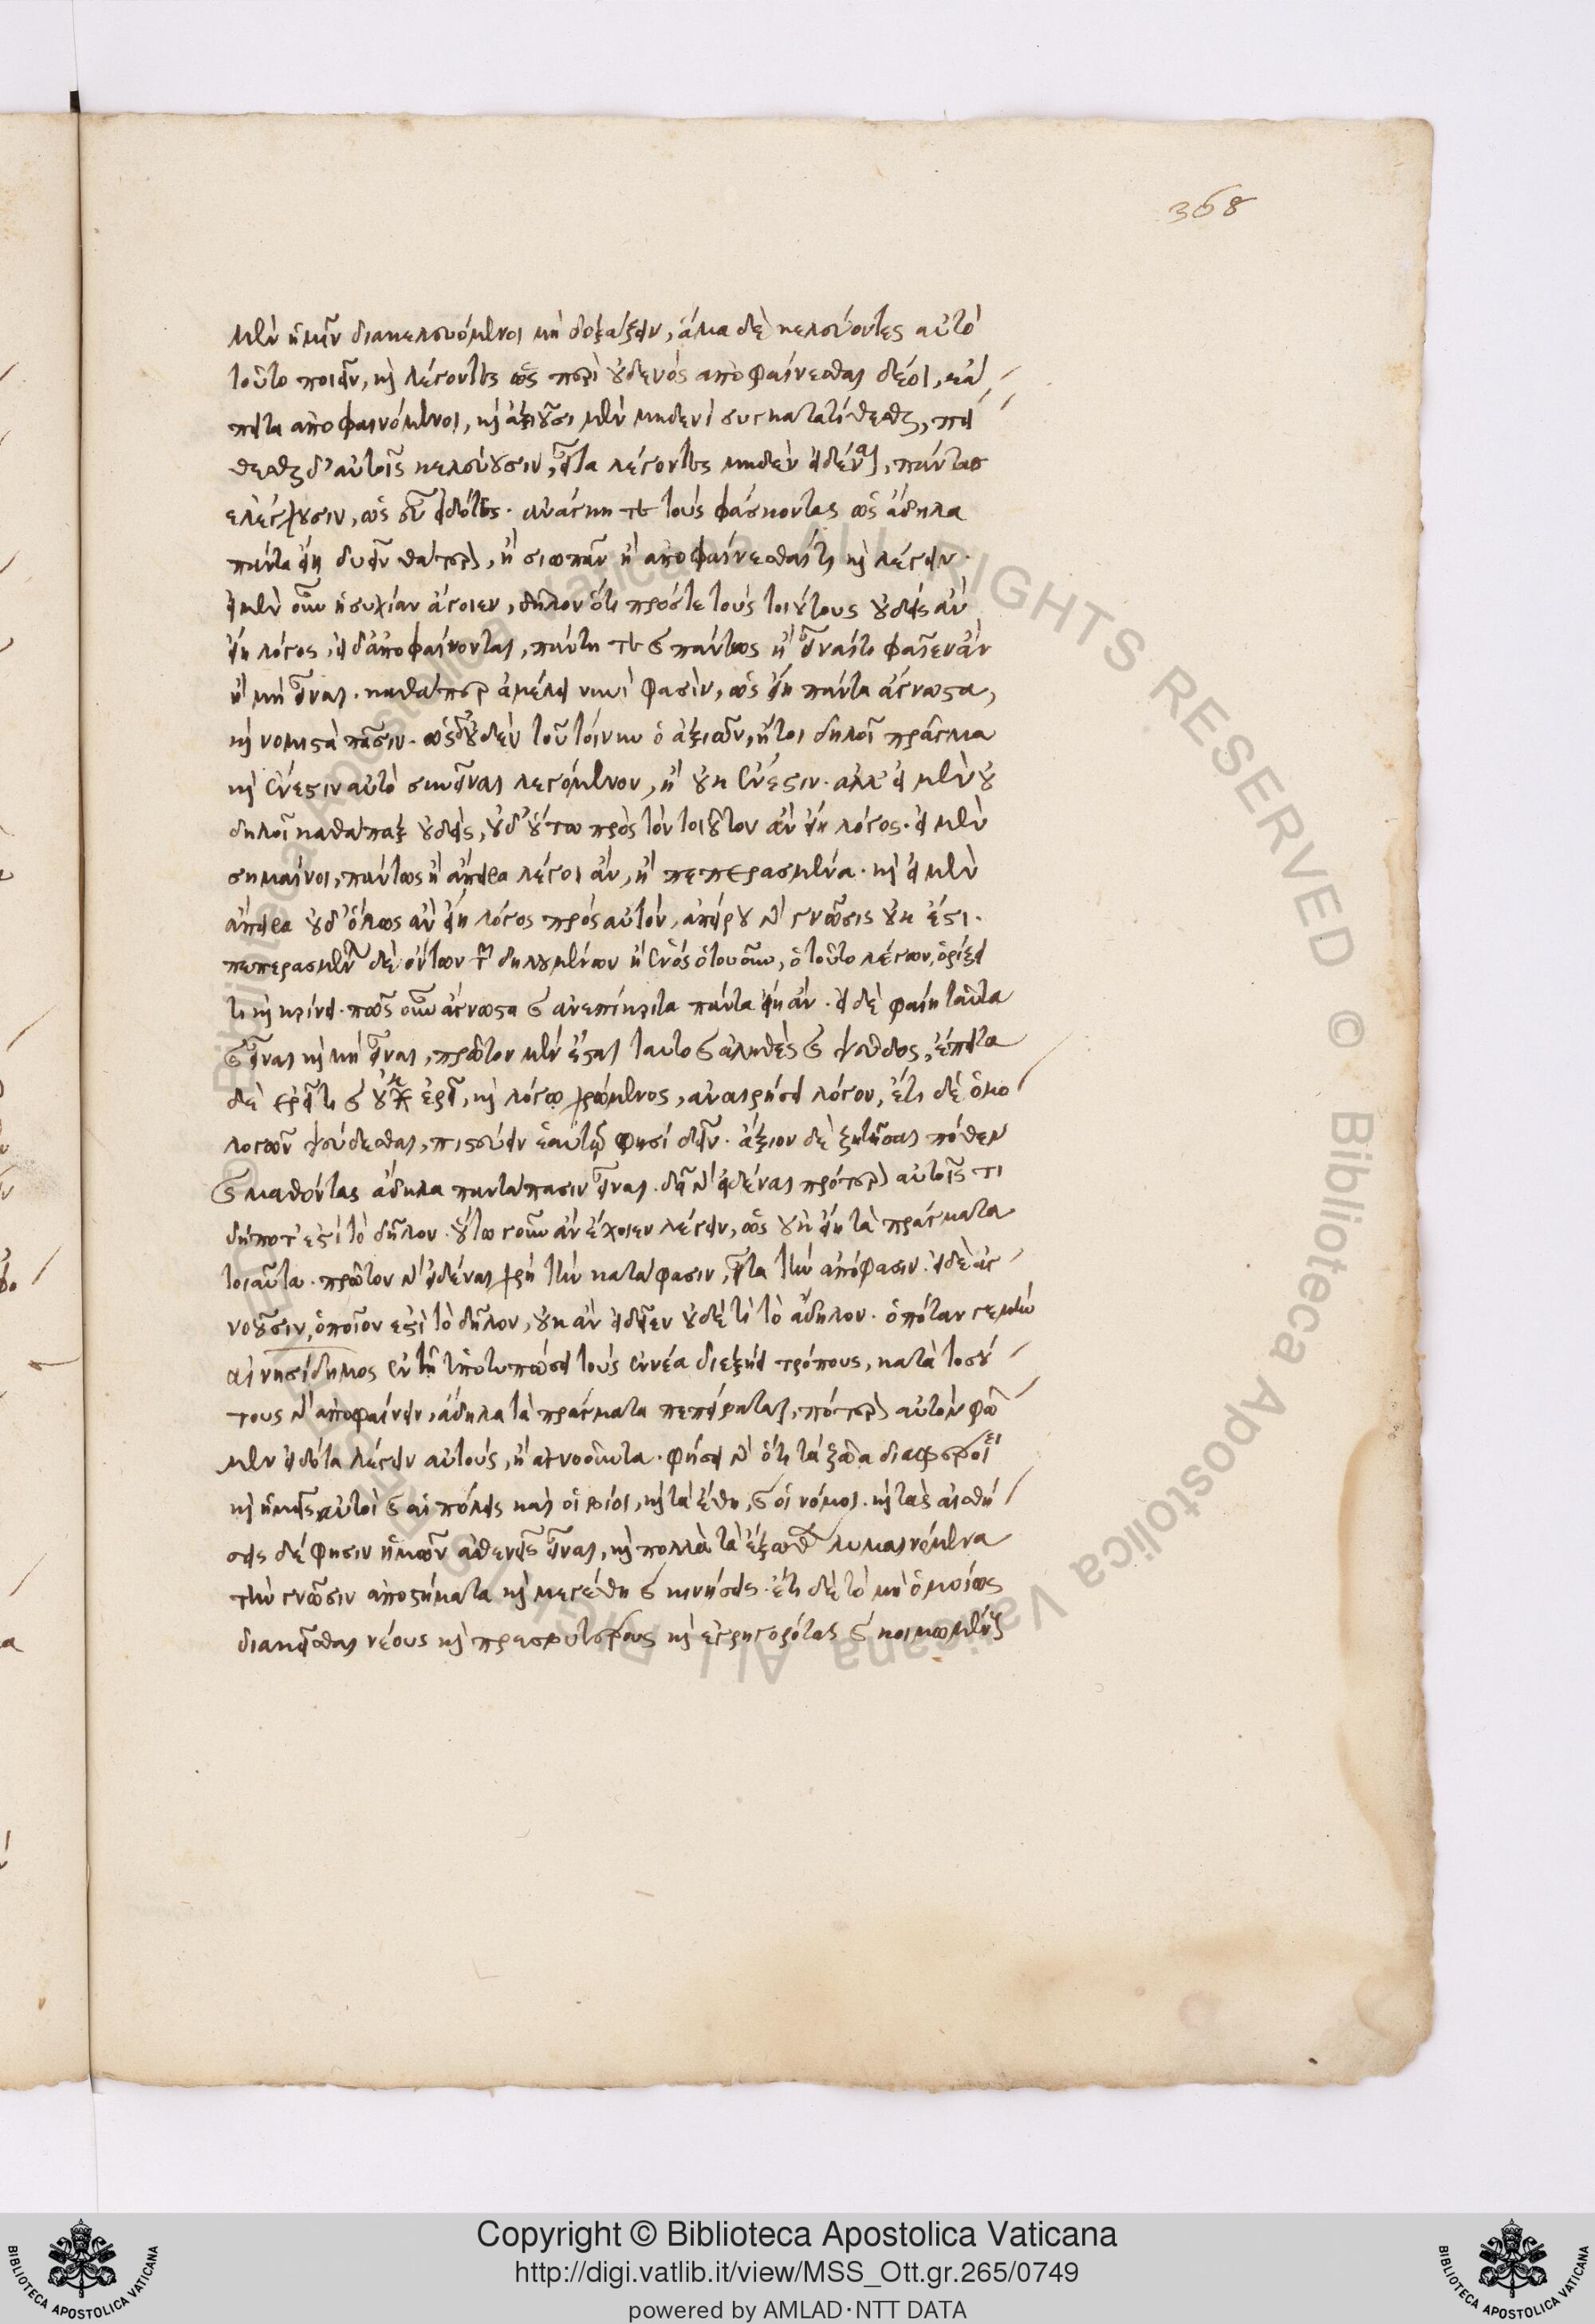 368
μὲν ἡμῖν διακελευόμενοι μὴ δοξάζειν, ἅμα δὲ κελεύοντες αὐτὸ
τοῦτο ποιεῖν, καὶ λέγοντες ὡς περὶ οὐδενὸς ἀποφαίνεσθαι δέοι, κἄ
πειτα ἀποφαινόμενοι, καὶ ἀξιοῦσι μὲν μηδενὶ συγκατατίθεσθαι, πεί
θεσθαι δ' αὐτοῖς κελεύουσιν, εἶτα λέγοντες μηδὲν εἰδέναι, πάντας
ἐλέγχουσιν, ὡς εὖ εἰδότες. ἀνάγκη τε τοὺς φάσκοντας ὡς ἄδηλα
πάντα εἴη δυεῖν θάτερον, ἢ σιωπᾶν ἢ ἀποφαίνεσθαί τι καὶ λέγειν.
εἰ μὲν οὖν ἡσυχίαν ἄγοιεν, δῆλον ὅτι πρός γε τοὺς τοιούτους οὐδεὶς ἂν
εἴη λόγος, εἰ δ' ἀποφαίνονται, πάντη τε καὶ πάντως ἢ εἶναί τι φαῖεν ἂν
ἢ μὴ εἶναι. καθάπερ ἀμέλει νυνὶ φασὶν, ὡς εἴη πάντα ἄγνωστα,
καὶ νομιστὰ πᾶσιν. ὡς δ' οὐδὲν τοῦ τοίνυν ὁ ἀξιῶν, ἤτοι δηλοῖ πρᾶγμα
καὶ ἔνεστιν αὐτὸ συνεῖναι λεγόμενον, ἢ οὐκ ἔνεστιν. ἀλλ' εἰ μὲν οὐ
δηλοῖ καθάπαξ οὐδεὶς, οὐδ' οὕτω πρὸς τὸν τοιοῦτον ἂν εἴη λόγος. εἰ μὲν
σημαίνοι, πάντως ἢ ἄπειρα λέγοι ἂν, ἢ πεπερασμένα. καὶ εἰ μὲν
ἄπειρα οὐδ' ὅλως ἂν εἴη λόγος πρὸς αὐτὸν, ἀπείρου γὰρ γνῶσις οὐκ ἔστι.
πεπερασμένων δὲ ὄντων τῶν δηλουμένων ἢ ἑνὸς ὁτουοῦν, ὁ τοῦτο λέγων, ὁρίζει
τι καὶ κρίνει. πῶς οὖν ἄγνωστα καὶ ἀνεπίκριτα πάντα εἴη ἄν. εἰ δὲ φαίη ταῦτα
καὶ εἶναι καὶ μὴ εἶναι, πρῶτον μὲν ἔσται ταυτὸ καὶ ἀληθὲς καὶ ψεῦδος, ἔπειτα
δὲ ἐρεῖ τι καὶ οὐκ ἐρεῖ, καὶ λόγῳ χρώμενος, ἀναιρήσει λόγον, ἔτι δὲ ὁμο
λογῶν ψεύδεσθαι, πιστεύειν ἑαυτῷ φησὶ δεῖν. ἄξιον δὲ ζητῆσαι πόθεν
καὶ μαθόντας ἄδηλα πανταπασιν εἶναι. δεῖ γὰρ εἰδέναι πρότερον αὐτοῖς τι
δήποτ' ἐστὶ τὸ δῆλον. οὕτω γοῦν ἂν ἔχοιεν λέγειν, ὡς οὐκ εἴη τὰ πράγματα
τοιαῦτα. πρῶτον γὰρ εἰδέναι χρὴ τὴν κατάφασιν, εἶτα τὴν ἀπόφασιν. εἰ δὲ ἀγ
νοοῦσιν, ὁποῖον ἐστὶ τὸ δῆλον, οὐκ ἂν εἰδεῖεν οὐδὲ τί τὸ ἄδηλον. ὁπόταν γε μὴν
αἰνησίδημος ἐν τῇ ὑποτυπώσει τοὺς ἐννέα διεξίῃ τρόπους, κατὰ τοσού
τους γὰρ ἀποφαίνειν, ἄδηλα τὰ πράγματα πεπείραται, πότερον αὐτὸν φῶ
μεν εἰδότα λέγειν αὐτούς, ἢ ἀγνοοῦντα. φήσει γὰρ ὅτι τὰ ζῶα διαφέροι
καὶ ἡμεῖς αὐτοὶ καὶ αἱ πόλεις καὶ οἱ βίοι, καὶ τὰ ἔθη, καὶ οἱ νόμοι. καὶ τὰς αἰσθή
σεις δέ φησιν ἡμῶν ἀσθενεῖς εἶναι, καὶ πολλὰ τὰ ἔξωθεν λυμαινόμενα
τὴν γνῶσιν ἀποστήματα καὶ μεγέθη καὶ κινήσεις. ἔτι δὲ τὸ μὴ ὁμοίως
διακεῖσθαι νέους καὶ πρεσβυτέρους καὶ ἐγρηγορότας καὶ κοιμωμένους
Copyright © Biblioteca Apostolica Vaticana
http://digi.vatlib.it/view/MSS_Ott.gr.265/0749
powered by AMLAD·NTT DATA